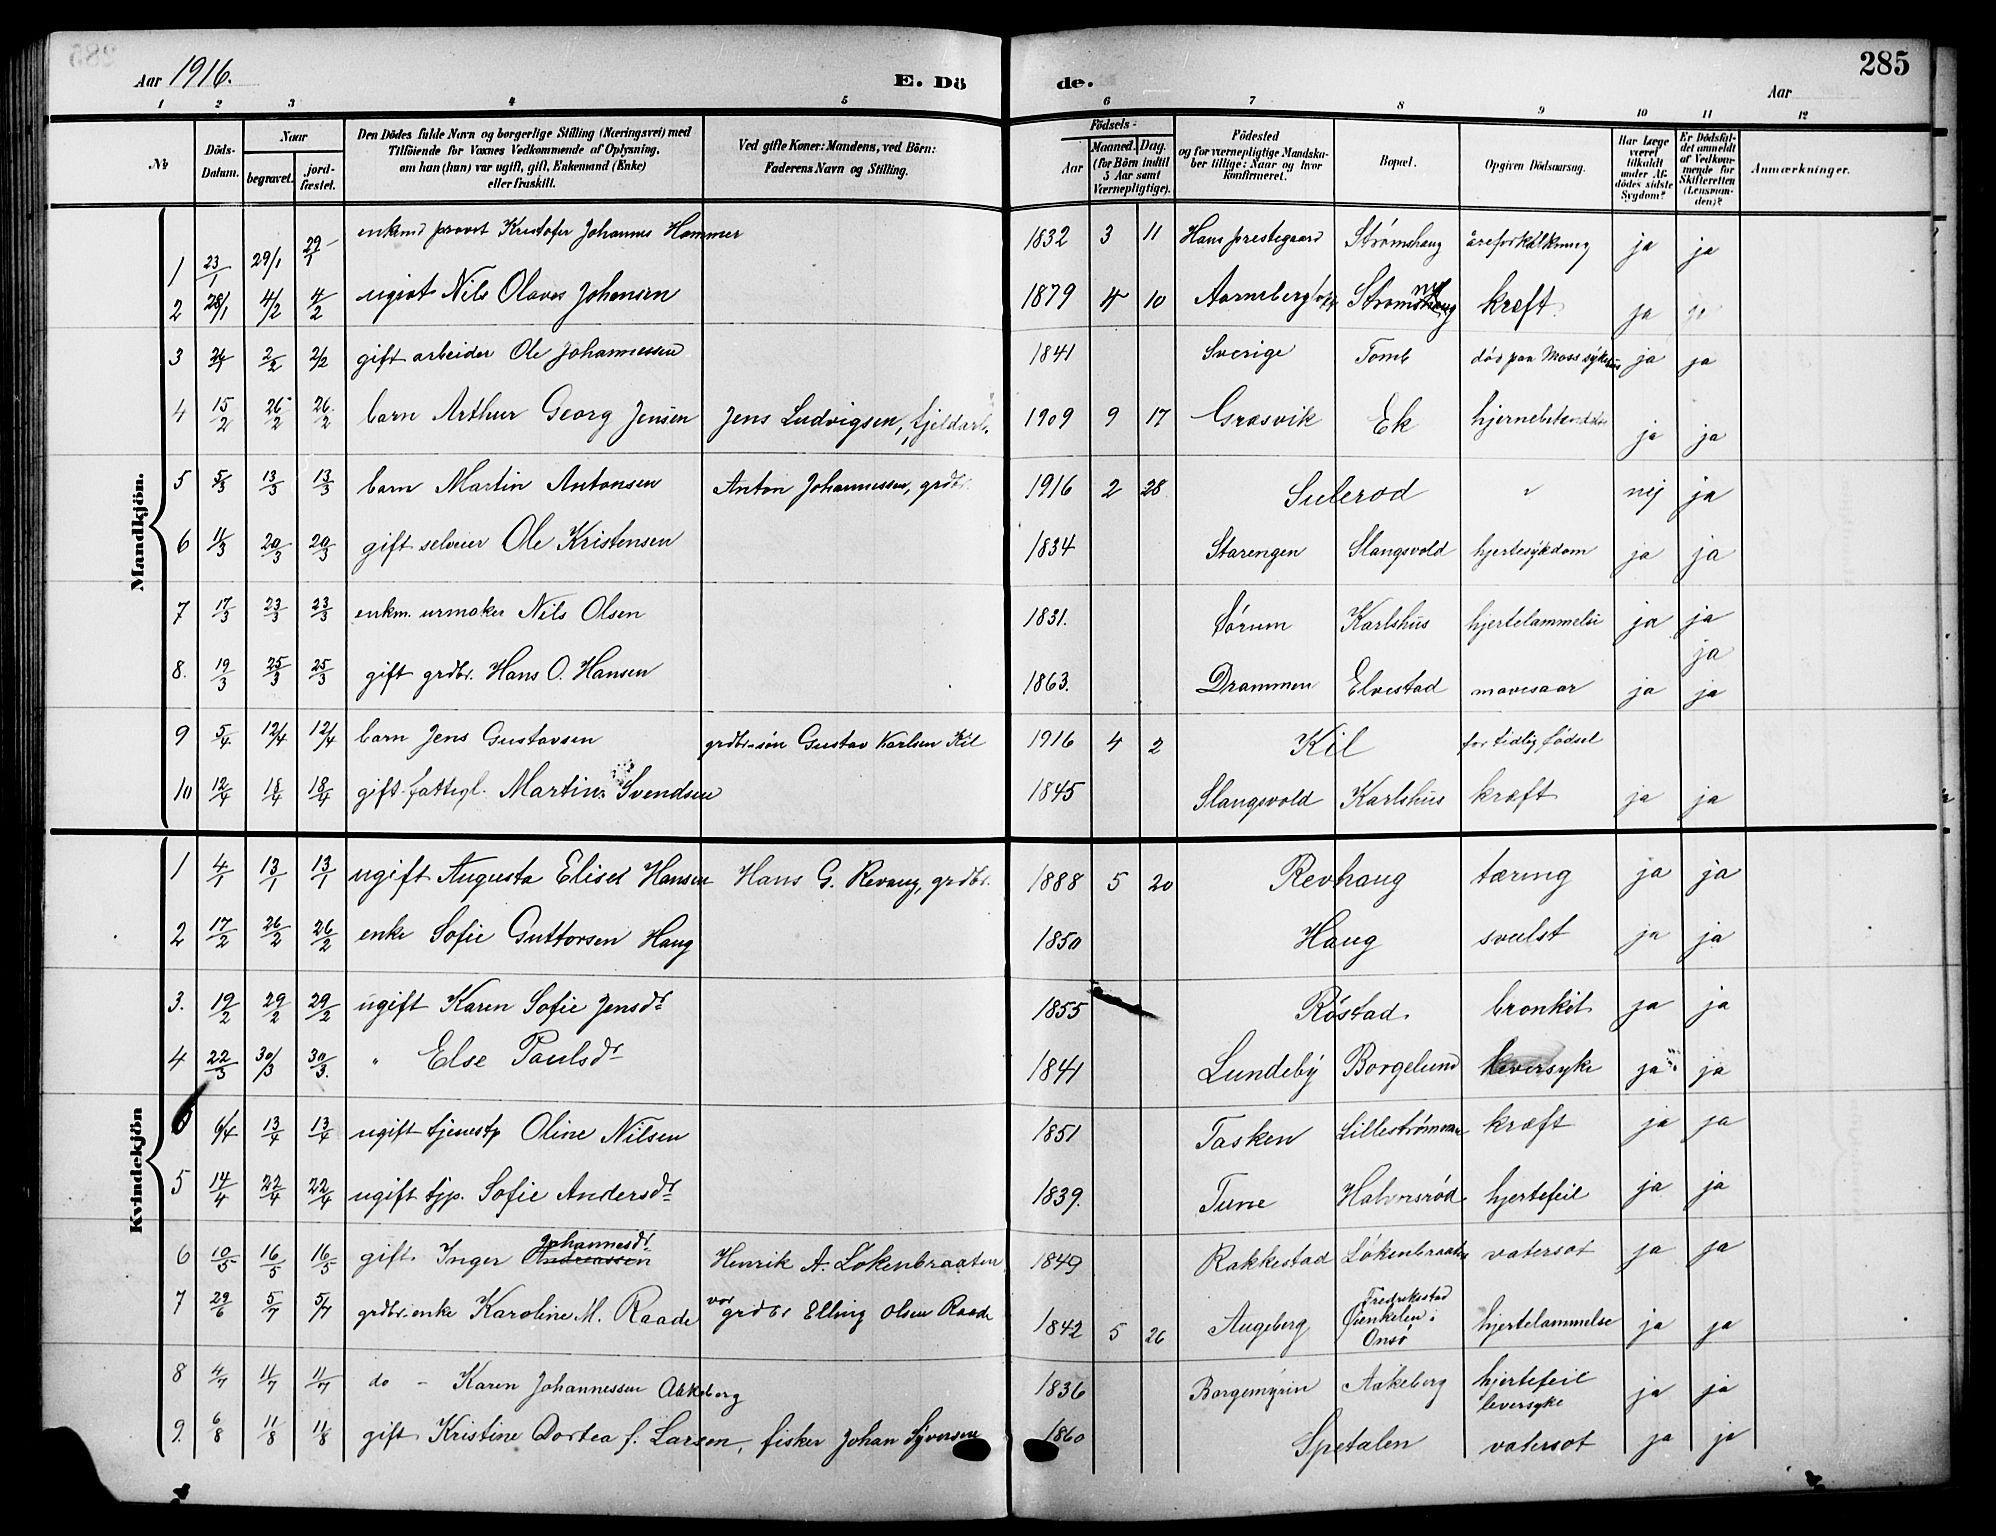 285
Aar 1916. E. Dö de. Aar
1 2 3 4 5 6 7 8 9 10 11 12
No
Döds-Datum.
Naar
begravet.
jord-fæstet.
Den Dödes fulde Navn og borgerlige Stilling (Næringsvei) med
Tilföiende for Voxnes Vedkommende af Oplysning,
om han (hun) var ugift, gift, Enkemand (Enke)
eller fraskilt.
Ved gifte Koner: Mandens, ved Börn:
Faderens Navn og Stilling.
Födsels-
Aar
Maaned. Dag.
(for Börn indtil
5 Aar samt
Værnepligtige).
Födested
og for værnepligtige Mandskaber tillige: Naar og hvor
konfirmeret.
Bopæl.
Opgiven Dödsaarsag.
Har Læge
været
tilkaldt
under Afdödes sidste
Sygdom?
Er Dödsfaldet anmeldt
af Vedkommende for
Skifteretten
(Lensmanden)?
Anmærkninger.
Mandkjön.
1 23/1 29/1 29/1 enkemd provst Kristofer Johannes Hammer 1832 3 11 Hans prestegaard Strømshaug åreforkalkning ja ja
2 28/1 4/2 4/2 ugivt Nils Olavus Johansen 1879 4 10 Strømshaug kræft ja ja
3 2/2 2/2 gift arbeider Ole Johannessen 1841 Sverige Tomb død paa Moss sykehus ja ja
4 15/2 26/2 26/2 barn Arthur Georg Jensen Jens Ludvigsen, fjeldarb. 1909 9 17 Græsvik Ek ja ja
5 5/3 13/3 13/3 barn Martin Antonsen Anton Johannessen, grdbr. 1916 2 28 Sulerød nej ja
6 11/3 20/3 20/3 gift selveier Ole Kristensen 1834 Starengen Slangsvold hjertesykdom ja ja
7 17/3 23/3 23/3 enkm. urmaker Nils Olsen 1831. Sørum Karlshus hjertelammelse ja ja
ja
8. 19/3 25/3 25/3 gift grdbr. Hans O. Hansen 1863. Drammen Elvestad mavesaar ja ja
9 5/4 12/4 12/4 barn Jens Gustavsen grdbr.søn Gustav Karlsen Kil 1916 4 2 Kil for tidlig födsel
10 12/4 18/4 18/4 gift fattigl. Martin Svendsen 1845 Slangsvold Karlshus kræft ja ja
Kvindekjön
1 4/1 13/1 13/1 ugift Augusta Elise Hansen Hans G. Revaug, grdbr. 1888 5 20 Revhaug tæring ja ja
2 17/2 26/2 26/2 enke Sofie Guttorsen Haug 1850 Haug svulst ja ja
3. 19/2 29/2 29/2 ugift Karen Sofie Jensdr 1855 Röstad. bronkit ja ja
4 22/3 30/3 30/3. " Else Paulsdr 1841 Lundeby Borgelund leversyke ja ja
6/4 13/4 13/4 ugift tjenestp Oline Nilsen 1851 Tasken Lillestrømmen kræft ja ja
5 14/4 22/4 22/4 ugift tjp. Sofie Andersdr 1839. Tune Halvorsrød hjertefeil ja ja
6 10/5 16/5 16/5 gift Inger Andreassen Johannesdr Henrik A. Løkenbraaten 1849 Rakkestad Løkenbraaten vatersot ja ja
7 29/6 5/7 5/7 grdbr.enke Karoline M. Raade grdbr Elling Olsen Raade 1842 5 26 Augeberg Fredrikstad
Øienkelen i
Onsø hjertelammelse ja ja
8 4/7 11/7 11/7 do - Karen Johannessen Aakeberg 1836 Borgemyren Aakeberg hjertefeil
leversyke ja ja
9. 6/8 11/8 11/8 gift Kristine Dortea f. Larsen, fisker Johan Syversen 1860 Spetalen vatersot ja ja